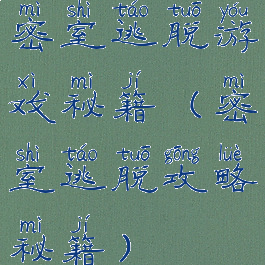 mì shì táo tuō yóu
密室逃脱游
xì mì jí mì
戏秘籍（密
shì táo tuō gōng lüè
室逃脱攻略
mì jí
秘籍）